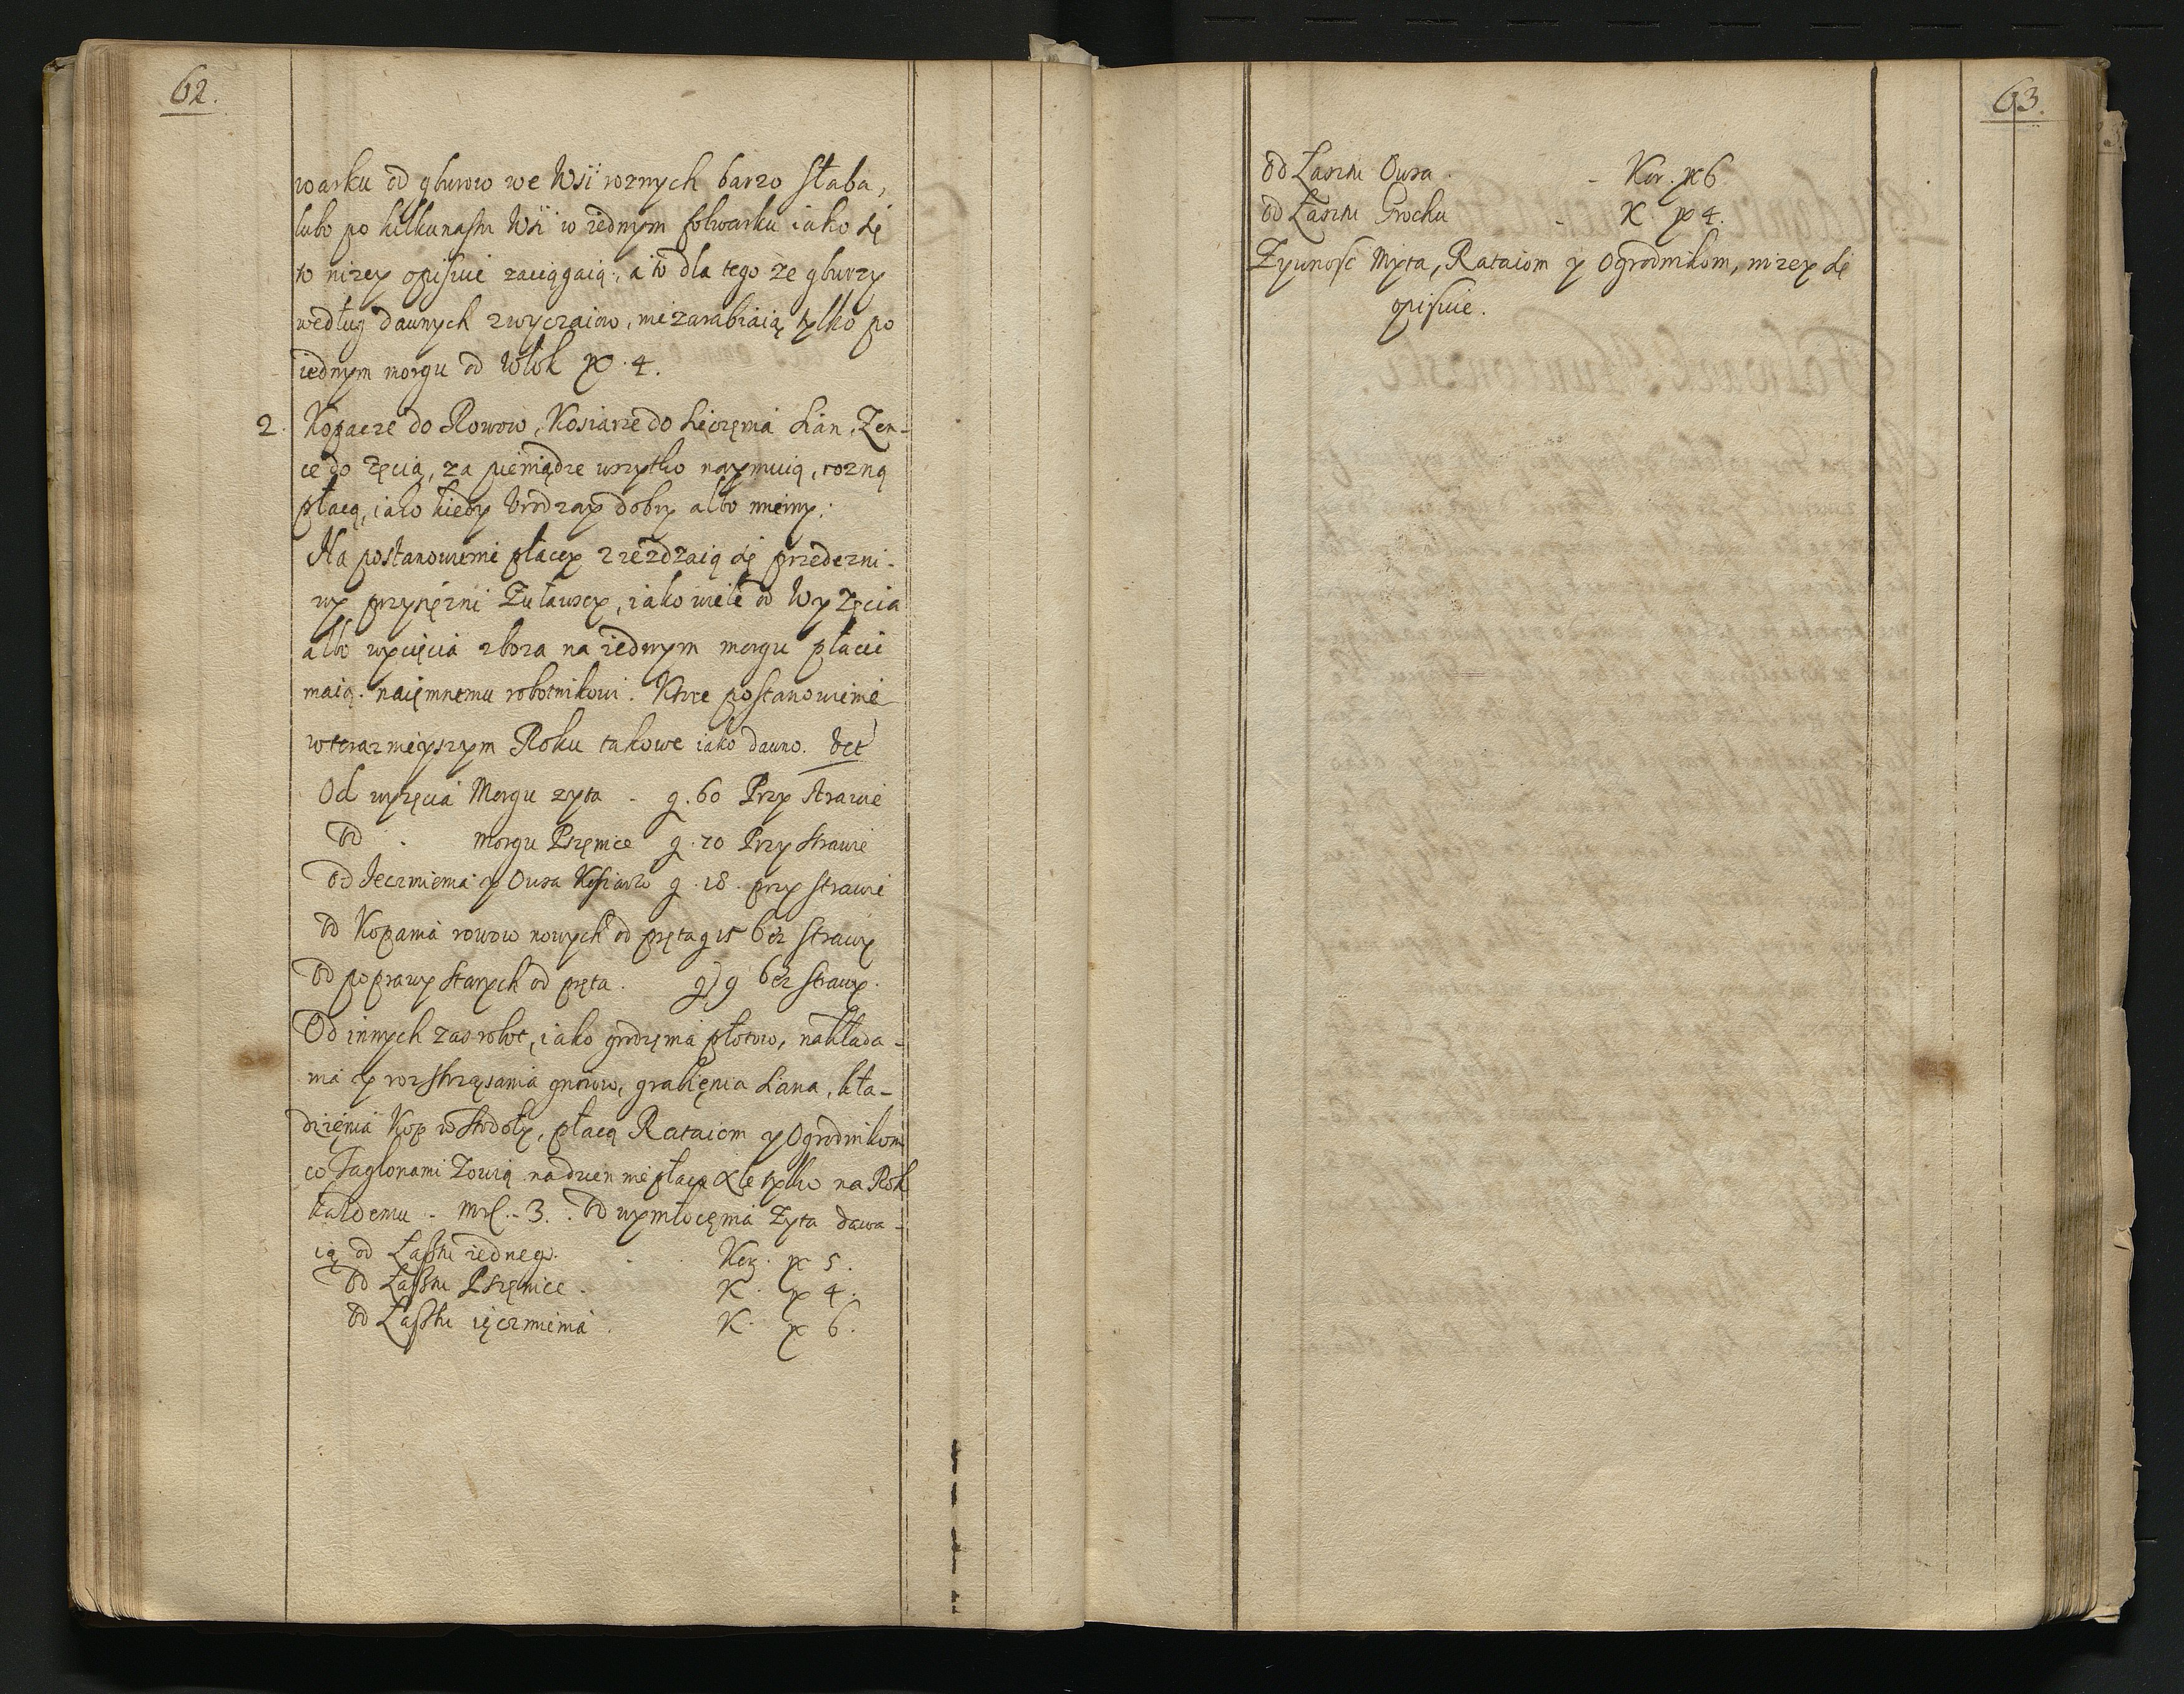 62.
warku od gburow we Wsi roznych barzo słaba,
lubo po kilkunastu Wsi w iednym folwarku iako się
to nizey opisuie zaciągaią, a to dla tego ze gburzy
według dawnych zwyczaiow, nie zarabiaią tylko po
iednym morgu od Włok № 4.
2. Kopacze do Rowow, Kosiarze do sieczenia sian, Zen-
ce do zęcia, za pieniądze wszytko naymuią, rozną
płacą, iako kiedy Vrodzay dobry albo mnieiszy.
Na postanowienie płacey zieżdzaią się przedezni-
wy przysięzni Zuławscy, iako wiele od Wy Zęcia
albo wycięcia zboza na iednym morgu płacic
maią naięmnemu robotnikowi. Ktore postanowienie
w teraznieyszym Roku takowe iako dawno. vct
Od wyzęcia Morgu zyta - g. 60 Przy strawie
od . morgu Pszenice g. 70 Przy strawie
od Jeczmienia y Owsa Kosiarzo g. 18. przy strawie
od Kopania rowow nowych od pręta g 15 bez strawy
od poprawy starych od pręta. g 9 bez strawy.
Od innych zas robot, iako grodzęnia płotow, nakłada-
nia y rozstrząsania gnoiow, grabięnia siana, kła-
dzięnia Kop w stodoły, płacą Rataiom y Ogrodnikom
co Taglonami Zowią na dzien nie płacą Ale tylko na Rok
kazdemu - Mrl. - 3. Od wymłocęnia Zyta dawa-
ią od Łasztu iednego. Kor. № 5.
od Łasztu Pszęnice. K. № 4.
od Łasztu ięczmienia. K. № 6.
63.
od Łasztu Owsa. - Kor. № 6
od Łasztu Grochu - K. № 4.
Zywnosć Myta, Rataiom y Ogrodnikom, nizey się
opisuie.